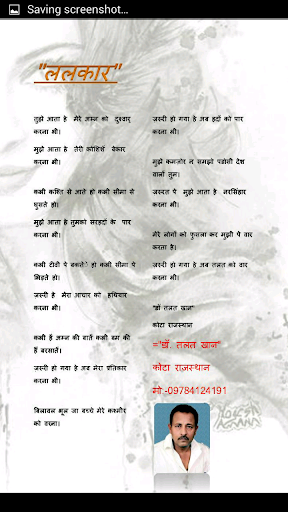 Saving screenshot...
"ललकार"
तुझे आता है मेरे अम्न को दुश्वार
करना भी।
मुझे आता है तेरी कोशिश बेकार
करना भी।
कभी कश्ति से आते हो कभी सीमा से
घुसते हो।
मुझे आता है तुमको सरहदों के पार
करना भी।
कभी टीवी पे बकते हो कभी सीमा पे
भिड़ते हो।
जरूरी है मेरा आचार को हथियार
करना भी।
कभी हैं अम्न की बातें कभी बम की
हैं बरसातें।
जरूरी हो गया है अब मेरा प्रतिकार
करना भी।
बिलावल भूल जा बच्चे मेरे कश्मीर
को वरना।
जरूरी हो गया है अब हदों को पार
करना भी।
मुझे कमजोर न समझो पडोसी देश
वालों तुम।
जरूरत पे मुझे आता है नरसिंहार
करना भी।
मेरे लोगों को फुसला कर मुझी पे वार
करता है।
जरूरी हो गया है अब तलत को वार
करना भी।
"डॉ तलत खान"
कोटा राजस्थान
="डॉ. तलत खान"
कोटा राजस्थान
मो-09784124191